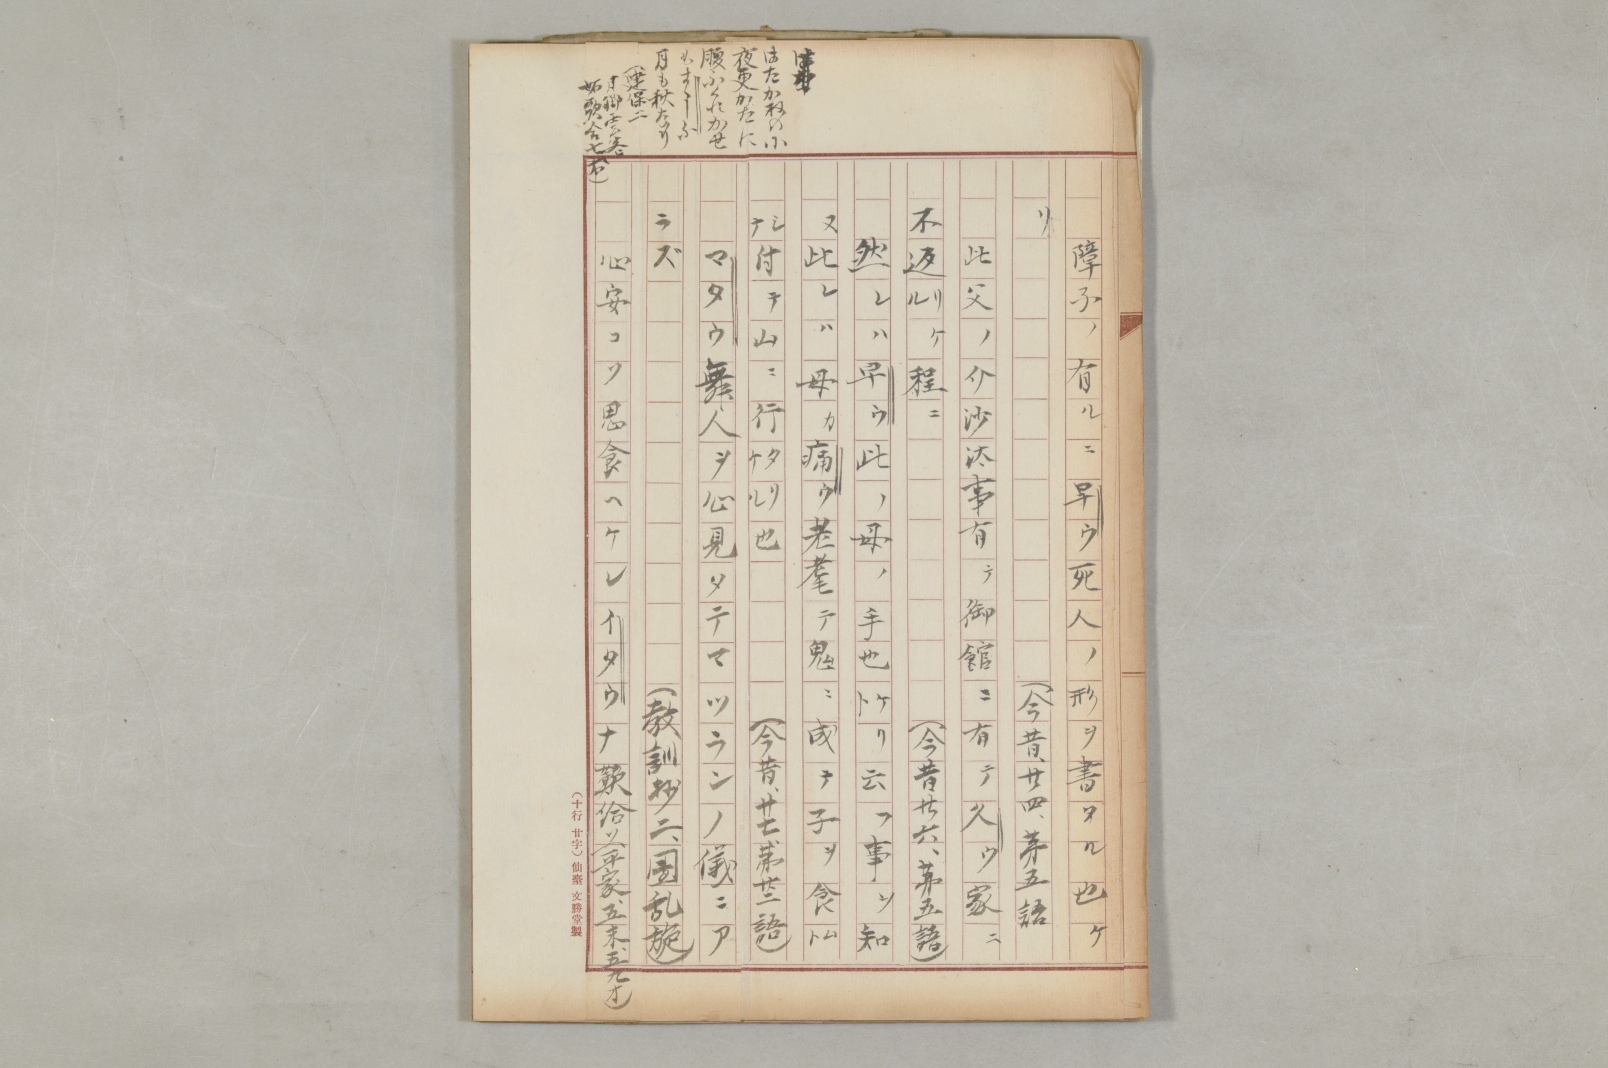 障子ノ有ルニ早ウ死人ノ形ヲ書タル也ケ
リ
(今昔、廿四、第五語
此父ノ介沙汰事有テ御館ニ有テ久ウ家ニ
不返リケル程ニ
(今昔廿六、第五語)
然レハ早ウ此ノ母ノ手也ケリト云フ事ヲ知
ヌ此レハ母カ痛ウ老耄テ鬼ニ成テ子ヲ食ムト
シテ付テ山ニ行タリケル也
(今昔、廿七、第廿二語)
マタウ舞人ヲ心見タテマツラントノ儀ニア
ラズ
(教訓抄二、團乱旋)
心安コソ思食ヘケレイタウナ歎給ソ(平家、五末、五九オ)
夜更かたに
月も秋なり
(建保二
(十行 廿字) 仙臺 文勝堂製